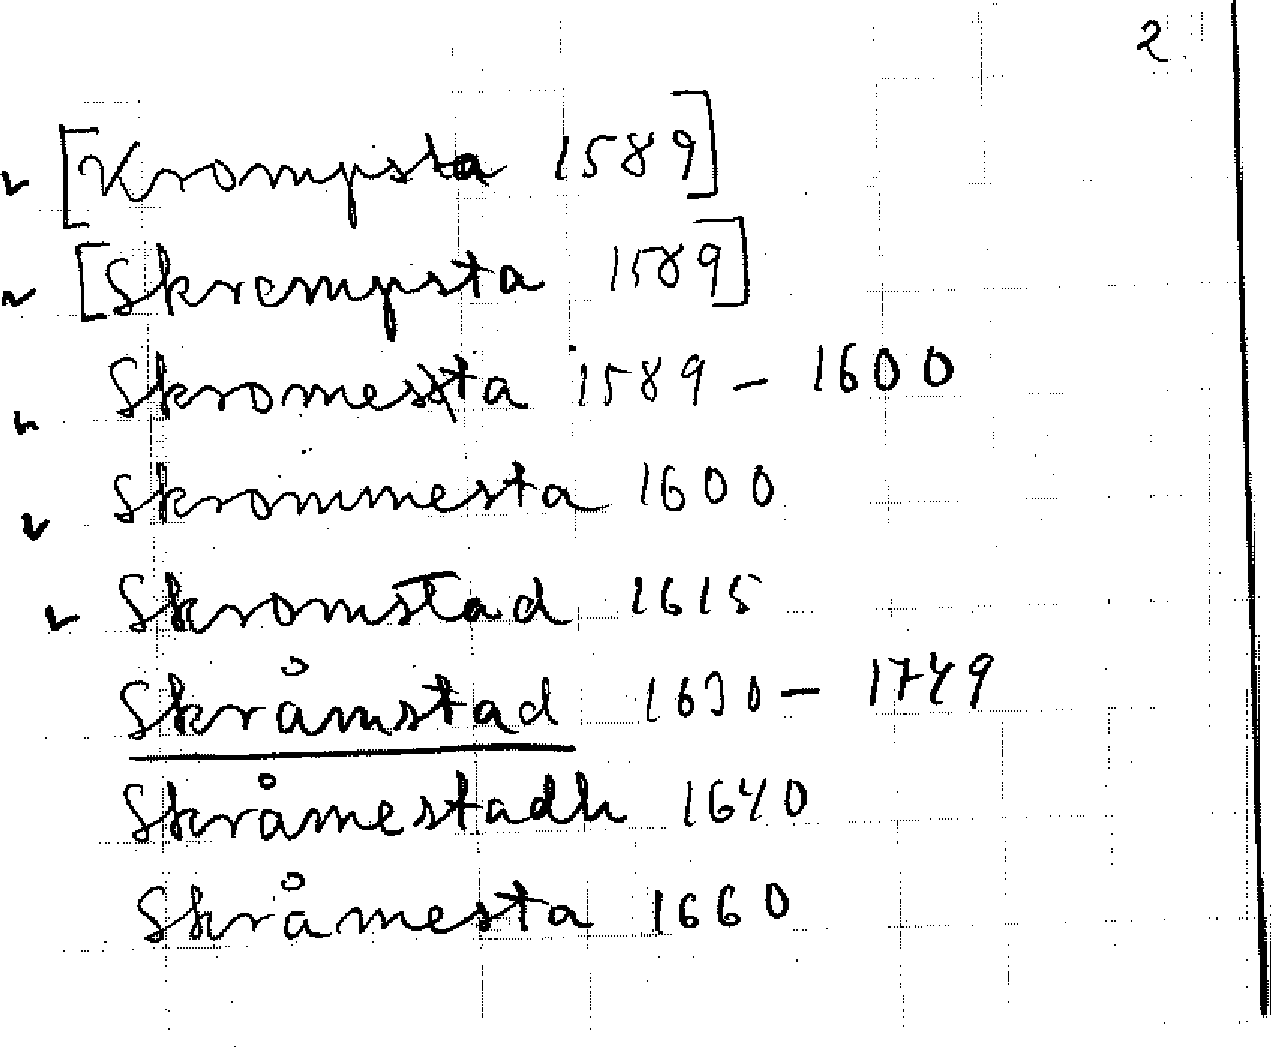 2
[Krompsta 1589]
[Skrempsta 1589]
Skromesta 1589 - 1600
Skrommesta 1600
Skromstad 1615
Skråmstad 1630 - 1749
Skråmestadh 1640
Skråmesta 1660